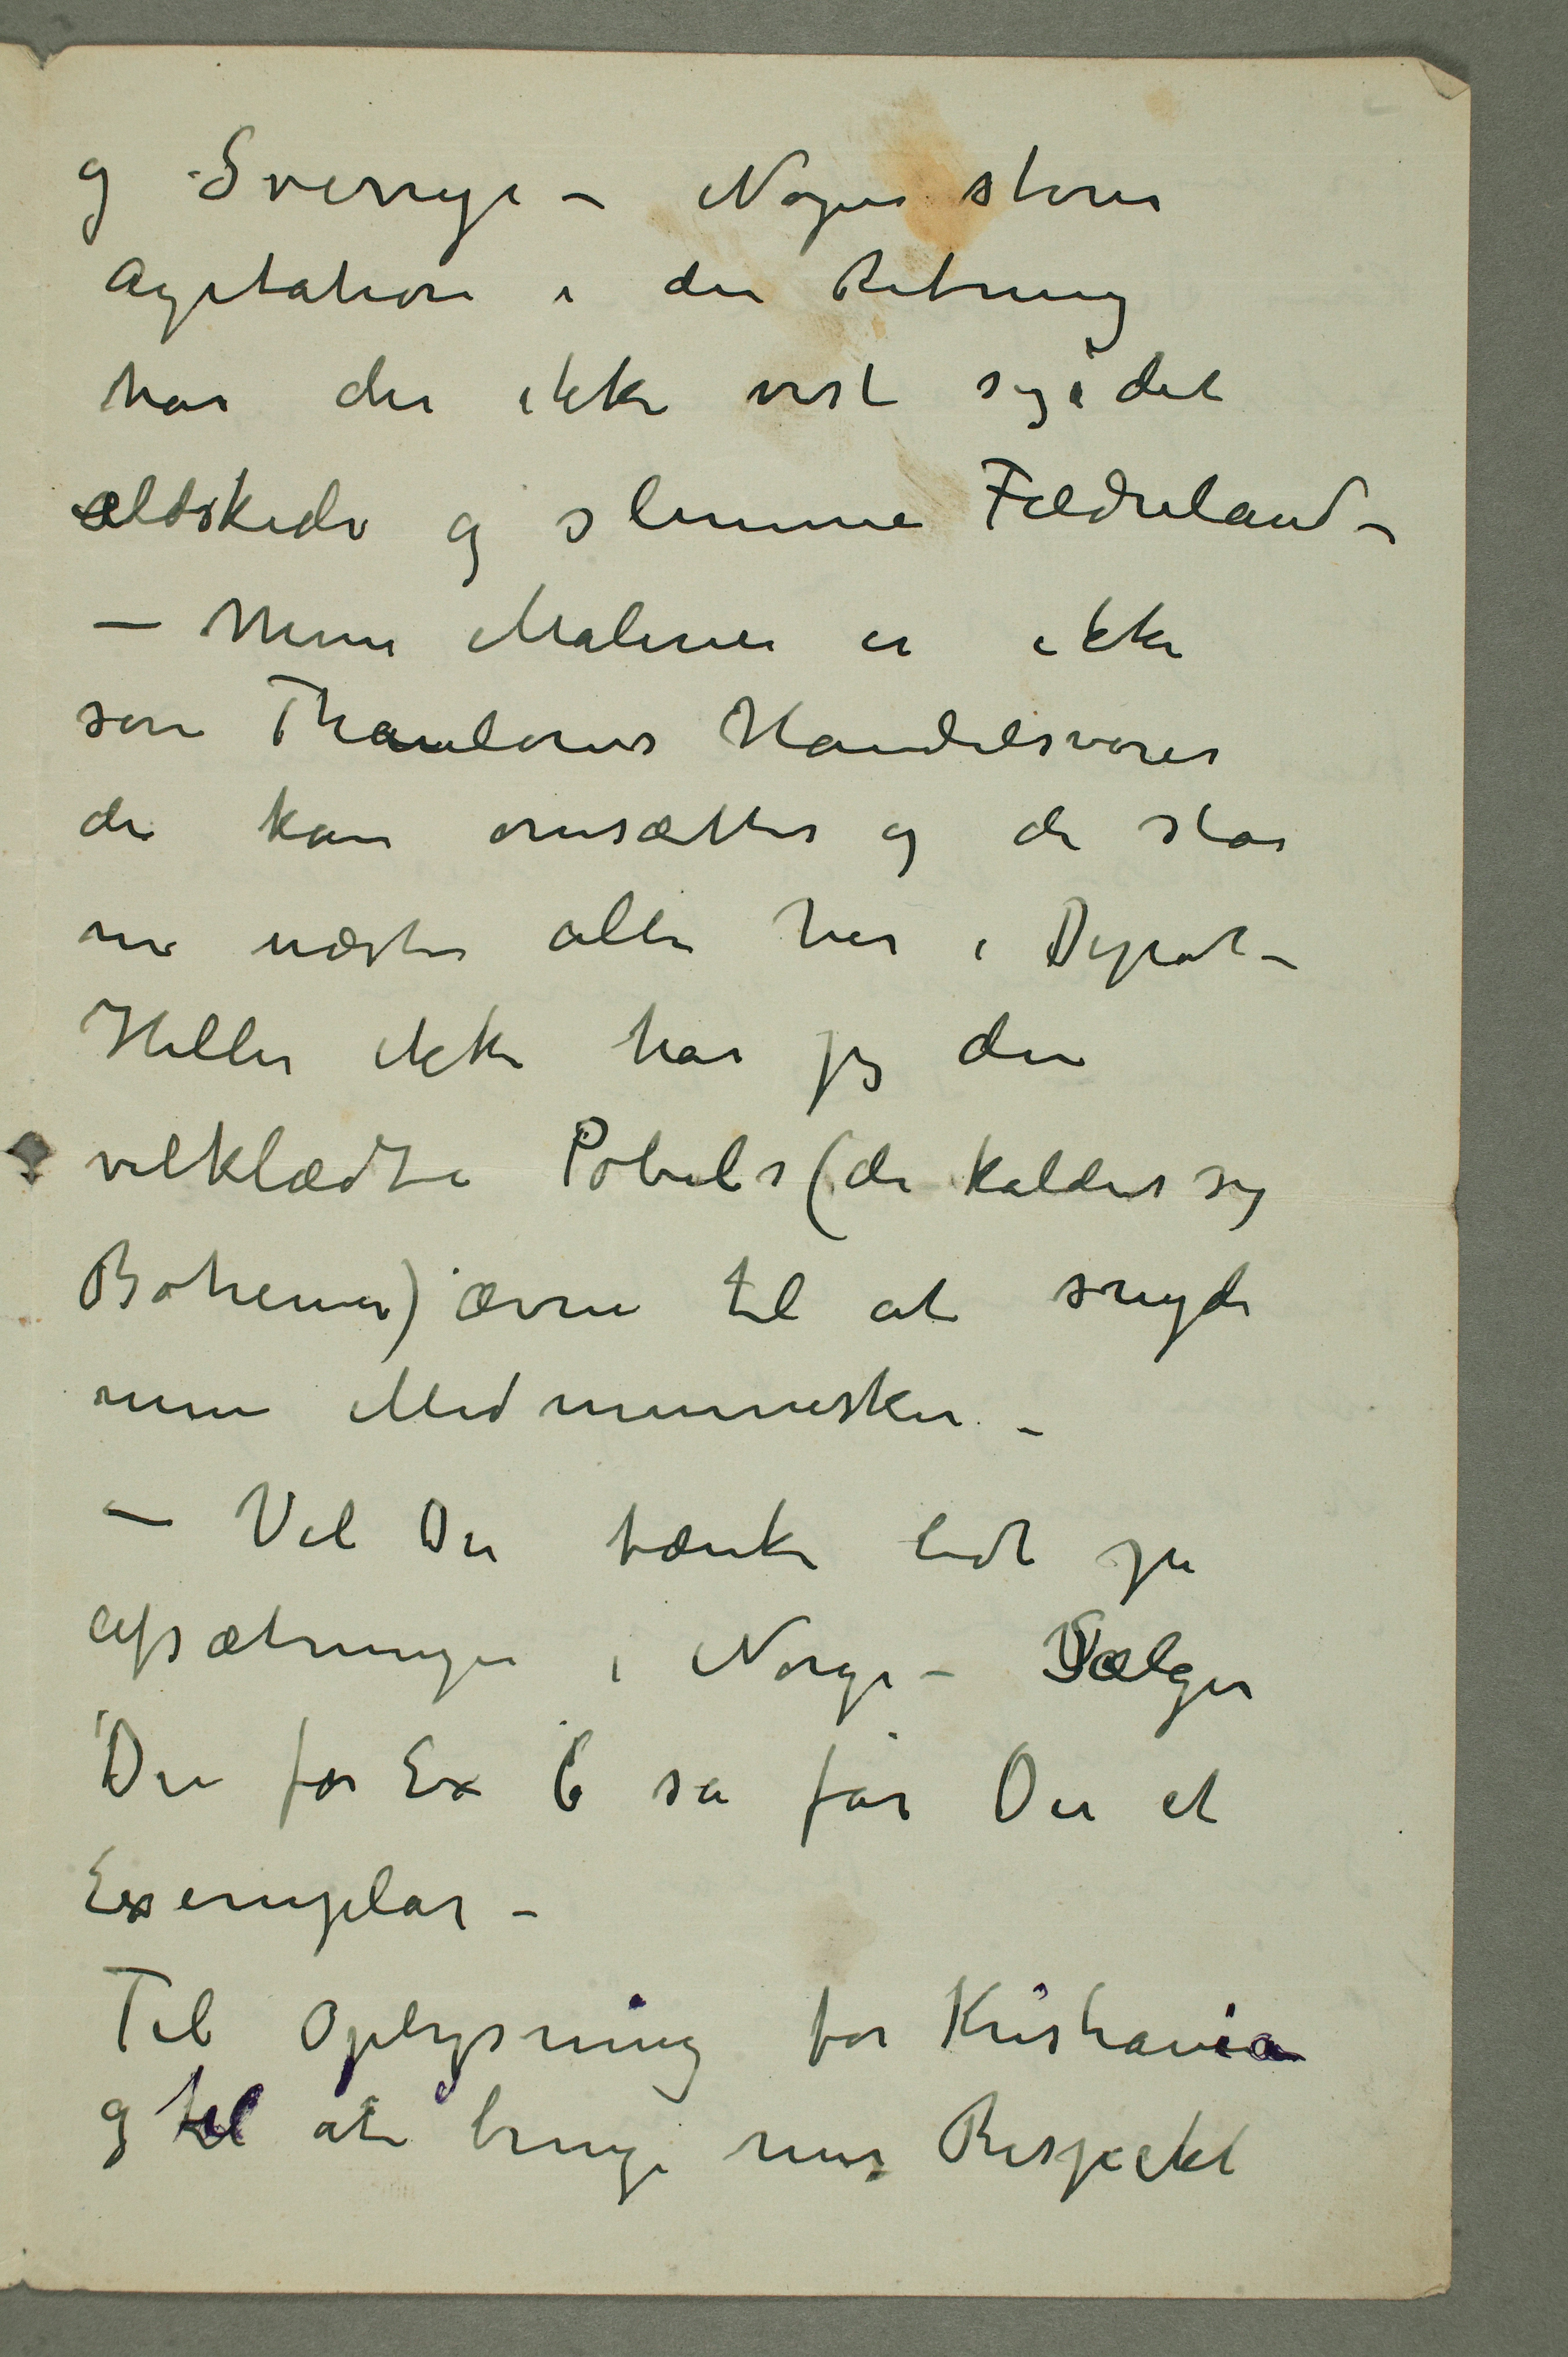 og Sverrige – Nogen større
Agitation i den Retning
har der ikke vist sig i det
ældskede og slemme Fædreland –
– Mine Malerier er ikke
som Thaulows Handelsvarer
de kan omsættes og de står
nu næsten alle her i Depot –
Heller ikke har jeg den
velklædte Pøbels (de kalder sig
Bohemer) ævne til at snyde
mine Medmennesker –
– Vil Du tænke lidt på
Afsætningen i Norge – Sælger
Du for Ex 6 så får Du et
Exemplar –
Til Oplysning for Kristiania
og til at bringe mer Respekt